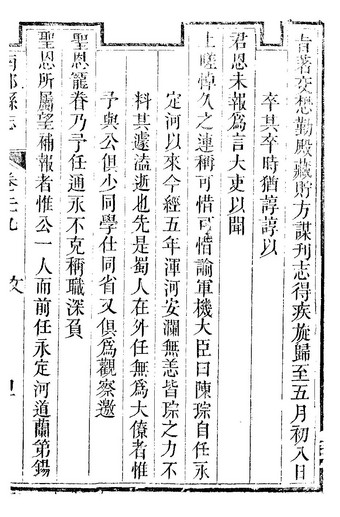 旨著交懋勤殿藏貯方謀刊志得疾旋歸至五月初八日
卒其卒時猶諄諄以
君恩未報爲言大吏以聞
上嗟悼久之連稱可惜可惜諭軍機大臣曰陳琮自任永
定河以來今經五年渾河安瀾無恙皆琮之力不
料其遽溘逝也先是蜀人在外任無爲大僚者惟
予與公俱少同學仕同省又俱爲觀察邀
聖恩寵眷乃予任通永不克稱職深負
聖恩所屬望補報者惟公一人而前任永定河道蘭第錫
縣志
卷之九
文